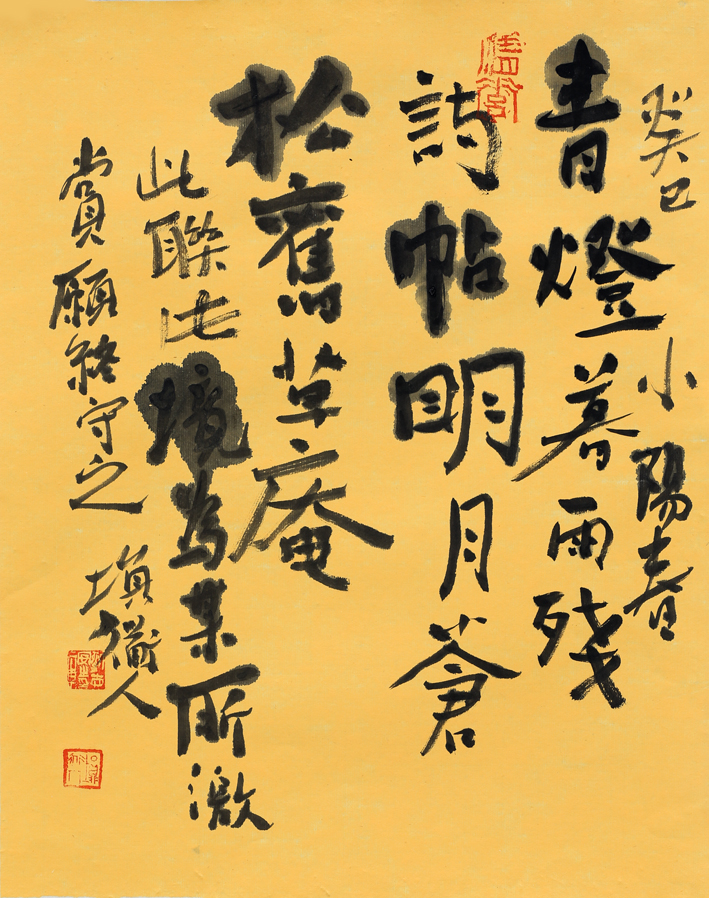 癸巳小陽春
青燈暮雨殘
詩帖明月蒼
松舊草庵
此聯此境為某所激
賞願終守之
人